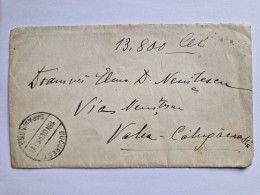 13.800 lei
Doamnei Elena D. Nenițescu
Via Nenițescu
Valea-Călugărească
BUCUREȘTI